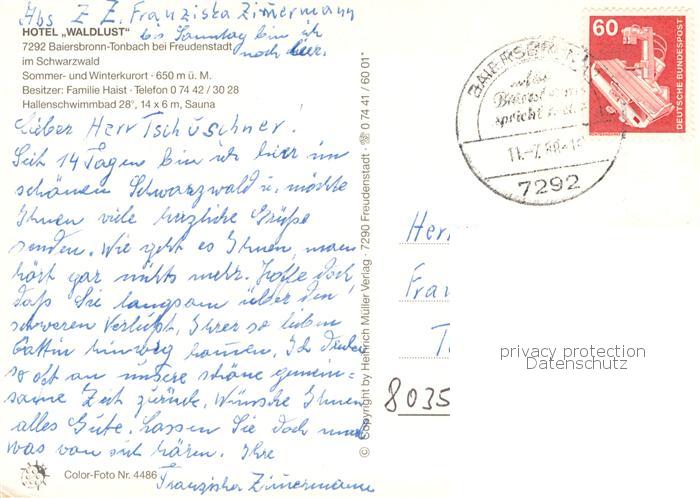 Abs Z Z. Franziska Zimmermann
HOTEL „WALDLUST" bis Sonntag bin ich
7292 Baiersbronn-Tonbach bei Freudenstadt noch hier.
im Schwarzwald
Sommer- und Winterkurort · 650 m ü. M.
Besitzer: Familie Haist · Telefon 0 74 42 / 30 28
Hallenschwimmbad 28°, 14 x 6 m, Sauna
Lieber Herr Tschuschner!
Seit 14 Tagen bin ich hier im
schönen Schwarzwald u. möchte
Ihnen viele herzliche Grüße
senden. Wie geht es Ihnen, man
hört gar nichts mehr. Hoffe doch
daß Sie langsam über den
schweren Verlußt, Ihrer so lieben
Gattin hinweg kommen. Ich denke
so oft an unsere schöne gemein=
same Zeit zurück. Wünsche Ihnen
alles Gute. Lassen Sie doch mal
was von sich hören. Ihre
Franziska Zimmermann
Color-Foto Nr. 4486
© Copyright by Heinrich Müller Verlag · 7290 Freudenstadt · ☏ 0 74 41 / 60 01*
60
DEUTSCHE BUNDESPOST
BAIERSBR
spricht
11.-7.88-1
7292
Her
Fra
T
8035
privacy protection
Datenschutz